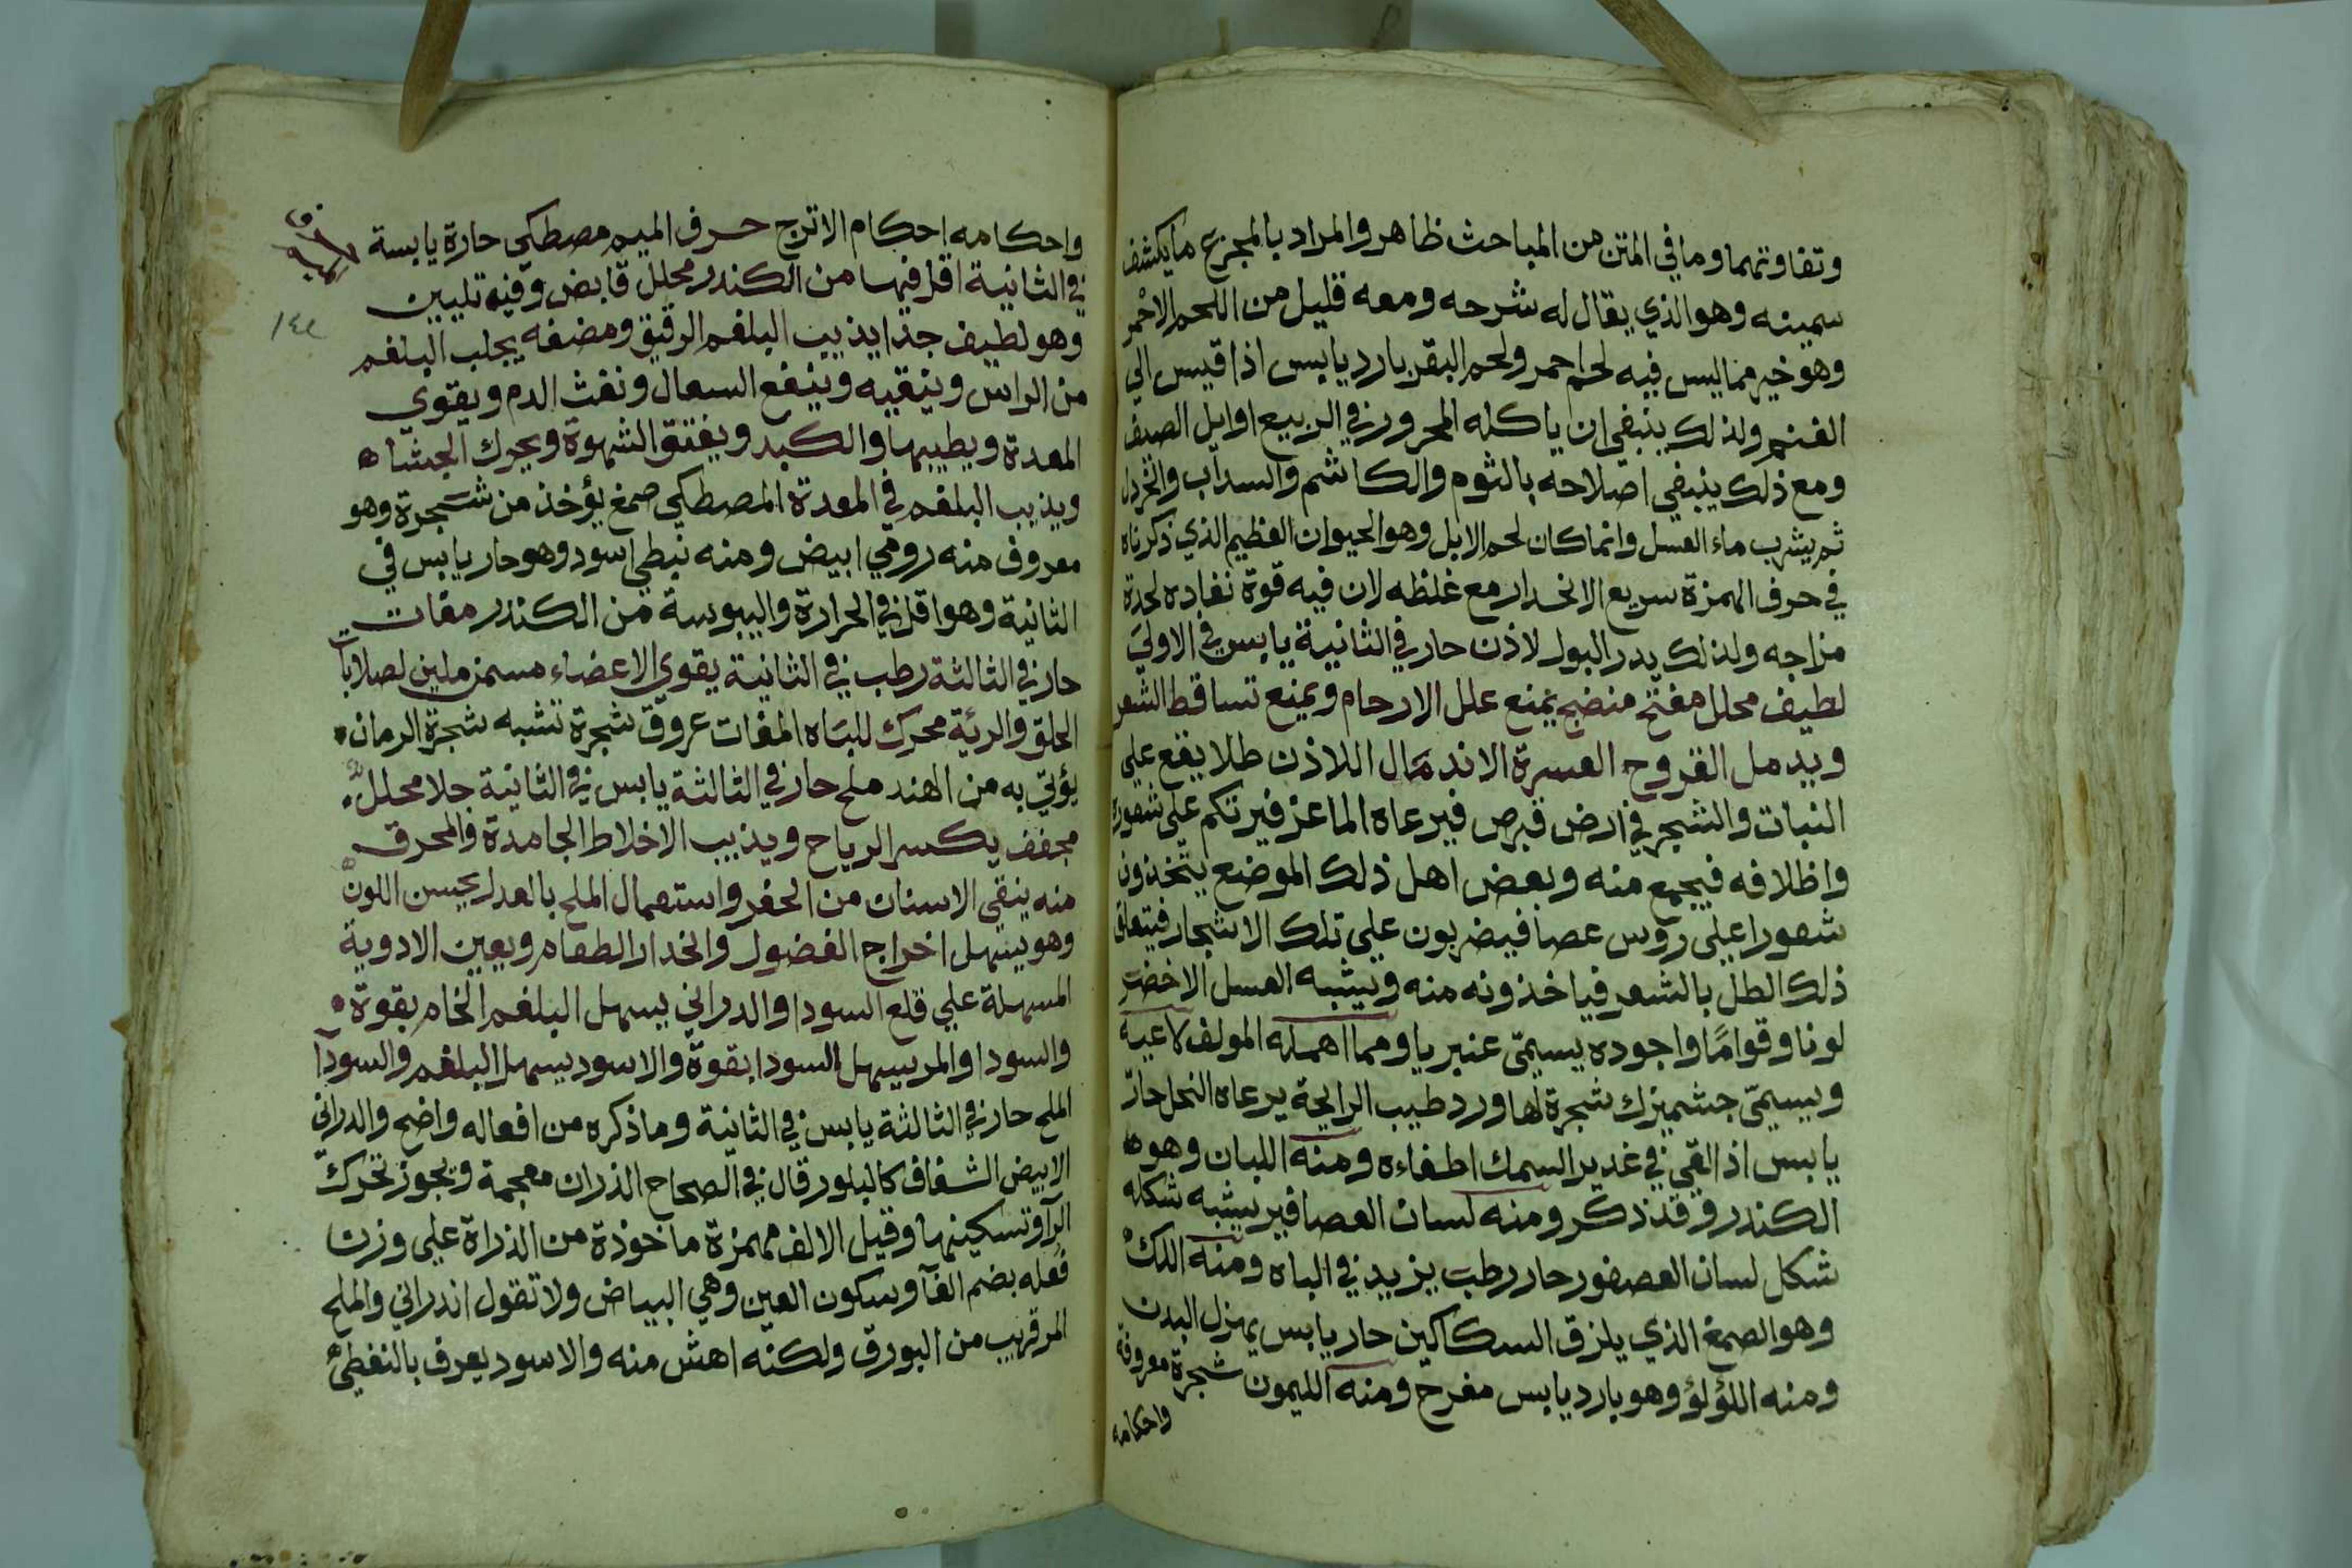 وتفاوتهما وما في المتن من المباحث ظاهر والمراد بالمجزع ما يكشف
سمينه وهو الذي يقال له شرحه ومعه قليل من اللحم الاحمر
وهو خير مما ليس فيه لحم احمر ولحم البقر بارد يابس اذا قيس الي
الغنم ولذلك ينبغي ان ياكله المحرور في الربيع اوايل الصيف
ومع ذلك ينبغي اصلاحه بالثوم والكاشم والسداب والخردل
ثم يشرب ماء العسل وانما كان لحم الابل وهو الحيوان العظيم الذي ذكرناه
في حرف الهمزة سريع الانحدار مع غلظه لان فيه قوة نفاده لحدة
مزاجه ولذلك يدر البول لاذن حار في الثانية يابس في الاولي
لطيف محلل مفتح منضج يمنع علل الارحام ويمنع تساقط الشعر
ويدمل القروح العسرة الاندمال اللاذن طلا يقع علي
النبات والشجر في ارض قبرص فيرعاه الماعز فيرتكم علي شعوره
واظلافه فيجمع منه وبعض اهل ذلك الموضع يتخذون
شعورا علي رؤس عصا فيضربون علي تلك الاشجار فيتعلق
ذلك الطل بالشعر فياخذونه منه ويشبه العسل الاخضر
لونا وقواما واجوده يسمّى عنبريا ومما اهمله المولف لاعية
ويسمّى جشميزك شجرة لها ورد طيب الرايحة يرعاه النحل حار
يابس اذا القي في غدير السمك اطفاءه ومنه اللبان وهو
الكندر وقد ذكر ومنه لسان العصافير يشبه شكله
شكل لسان العصفور حار رطب يزيد في الباه ومنه اللك
وهو الصمغ الذي يلزق السكاكين حار يابس يهزل البدن
ومنه اللؤلؤ وهو بارد يابس مفرح ومنه الليمون شجرة معروفة
واحكامه
واحكامه احكام الاترج حرف الميم مصطكي حارة يابسة
في الثانية اقل فيها من الكندر محلل قابض وفيه تليين
١٤٤
وهو لطيف جدا يذيب البلغم الرقيق ومضغه يجلب البلغم
من الراس وينقيه وينفع السعال ونفث الدم ويقوي
المعدة ويطيبها والكبد ويفتق الشهوة ويحرك الجشا
ويذيب البلغم في المعدة المصطكي صمغ يؤخذ من شجرة وهو
معروف منه رومي ابيض ومنه نبطي اسود وهو حار يابس في
الثانية وهو اقل في الحرارة واليبوسة من الكندر مغاث
حار في الثالثة رطب في الثانية يقوي الاعضاء مسمن ملين لصلابات
الحلق والرئة محرك للباه المغاث عروق شجرة تشبه شجرة الرمان
يؤتي به من الهند ملح حار في الثالثة يابس في الثانية جلا محلل
مجفف يكسر الرياح ويذيب الاخلاط الجامدة والمحرق
منه ينقي الاسنان من الحفر واستعمال الملح بالعدل يحسن اللون
وهو يسهل اخراج الفضول وانحدار الطعام ويعين الادوية
المسهلة علي قلع السودا والدراني يسهل البلغم الخام بقوة
والسودا والمر يسهل السودا بقوة والاسود يسهل البلغم والسودا
الملح حار في الثالثة يابس في الثانية وما ذكره من افعاله واضح والدراني
الابيض الشفاف كالبلور قال في الصحاح الذران معجمة ويجوز تحرك
الرآ وتسكينها وقيل الالف مهمزة ماخوذة من الذراة علي وزن
فُعله بضم الفآ وسكون العين وهي البياض ولا تقول اندراني والملح
المر قريب من البورق ولكنه اهش منه والاسود يعرف بالنفطي